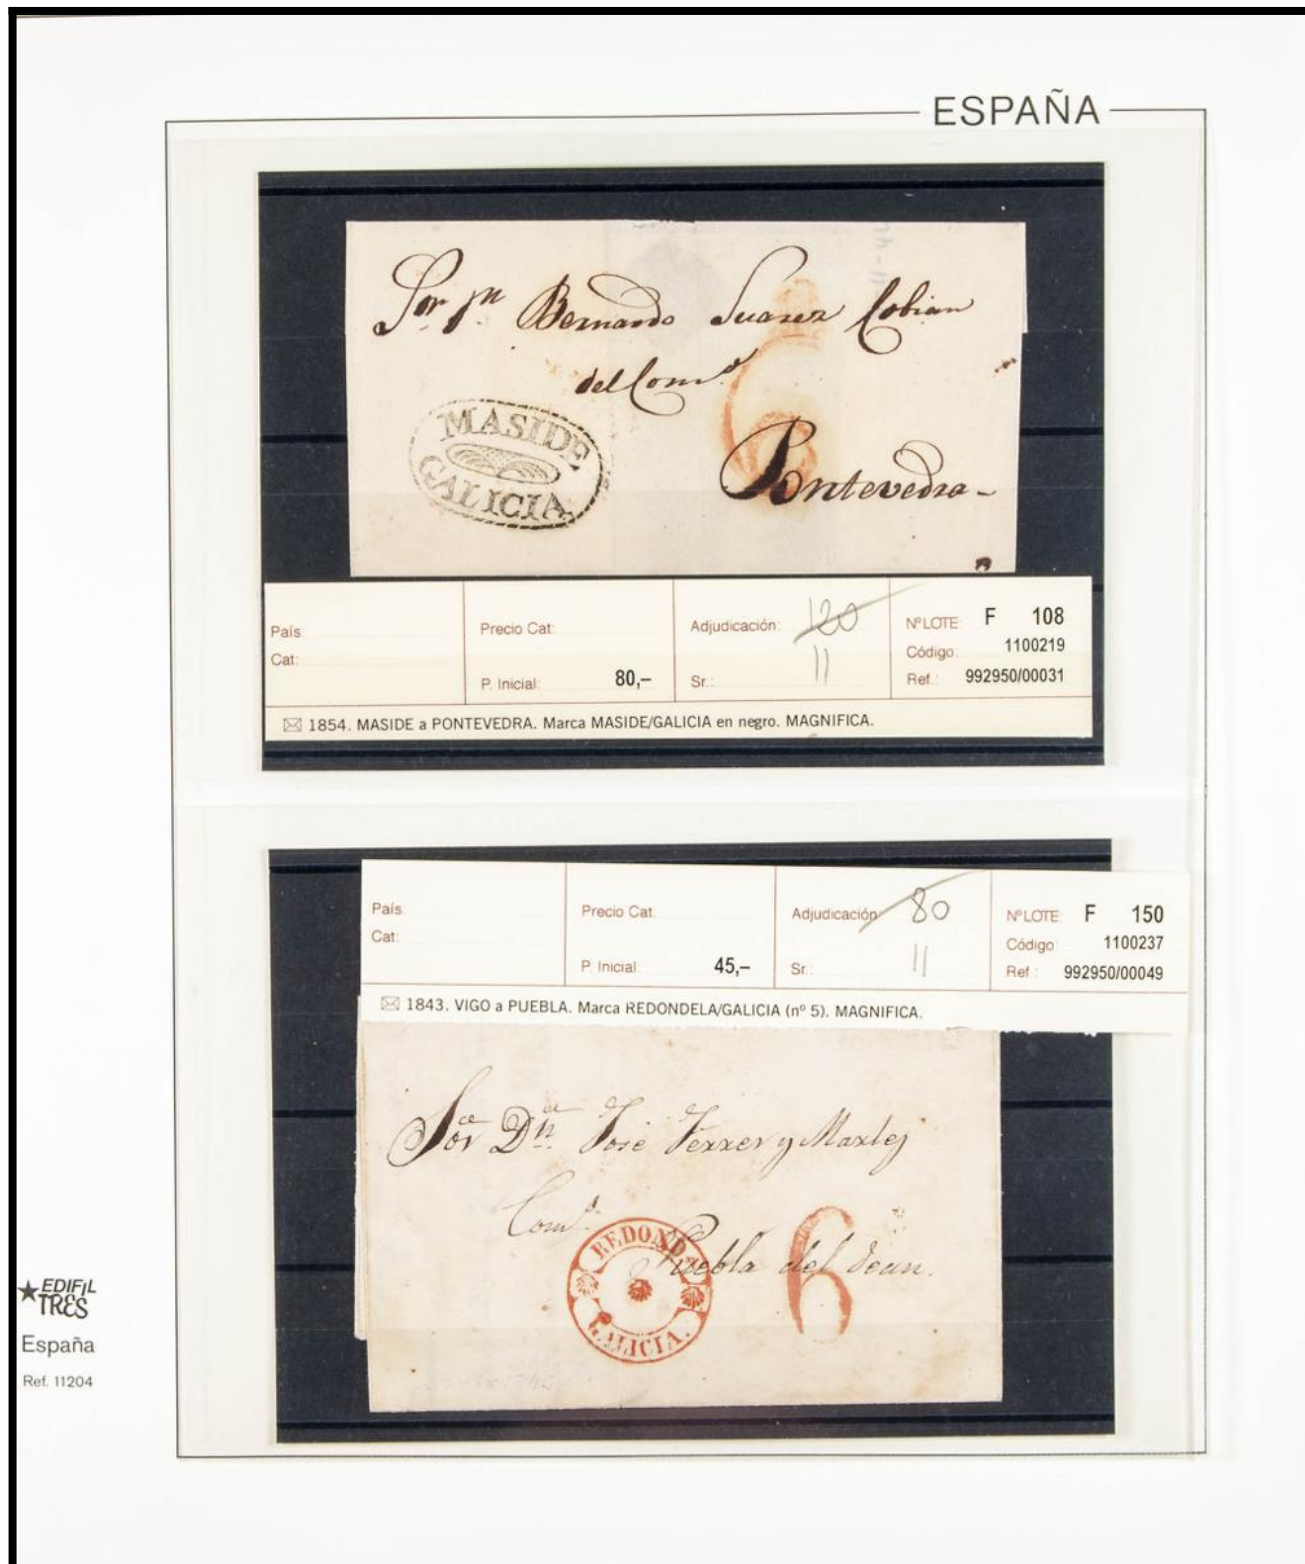 ESPAÑA
Sor Dn Bernardo Suarez Cobian
del Comº
Pontevedra
6
MASIDE
GALICIA
País:
Cat:
Precio Cat:
P. Inicial: 80,–
Adjudicación: 120
Sr.: 11
NºLOTE: F 108
Código: 1100219
Ref.: 992950/00031
1854. MASIDE a PONTEVEDRA. Marca MASIDE/GALICIA en negro. MAGNIFICA.
País:
Cat:
Precio Cat:
P. Inicial: 45,–
Adjudicación: 80
Sr.: 11
NºLOTE: F 150
Código: 1100237
Ref.: 992950/00049
1843. VIGO a PUEBLA. Marca REDONDELA/GALICIA (nº 5). MAGNIFICA.
Sor Dn José Ferrer y
Comº
Puebla del Dean.
6
REDONDA
GALICIA.
EDIFIL
TRES
España
Ref. 11204